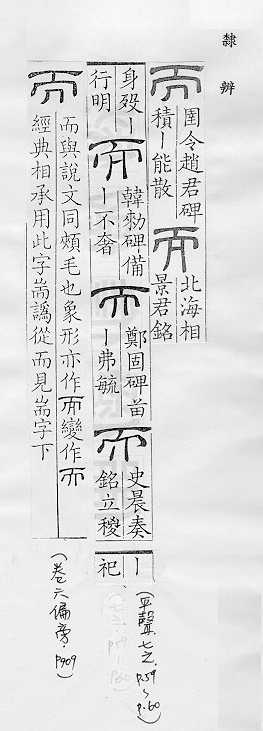 隸辨
而 圉令趙君碑
積丨能散
而 北海相
景君銘
身殁丨
行明
而 韓勑碑備
丨不奢
而 鄭固碑苗
丨弗毓
而 史晨奏
銘立稷
丨
祀
(平聲.七之.P.59~P.60)
而 而與說文同頰毛也象形亦作而變作而
經典相承用此字耑譌從而見耑字下
(卷六偏旁.P.909)